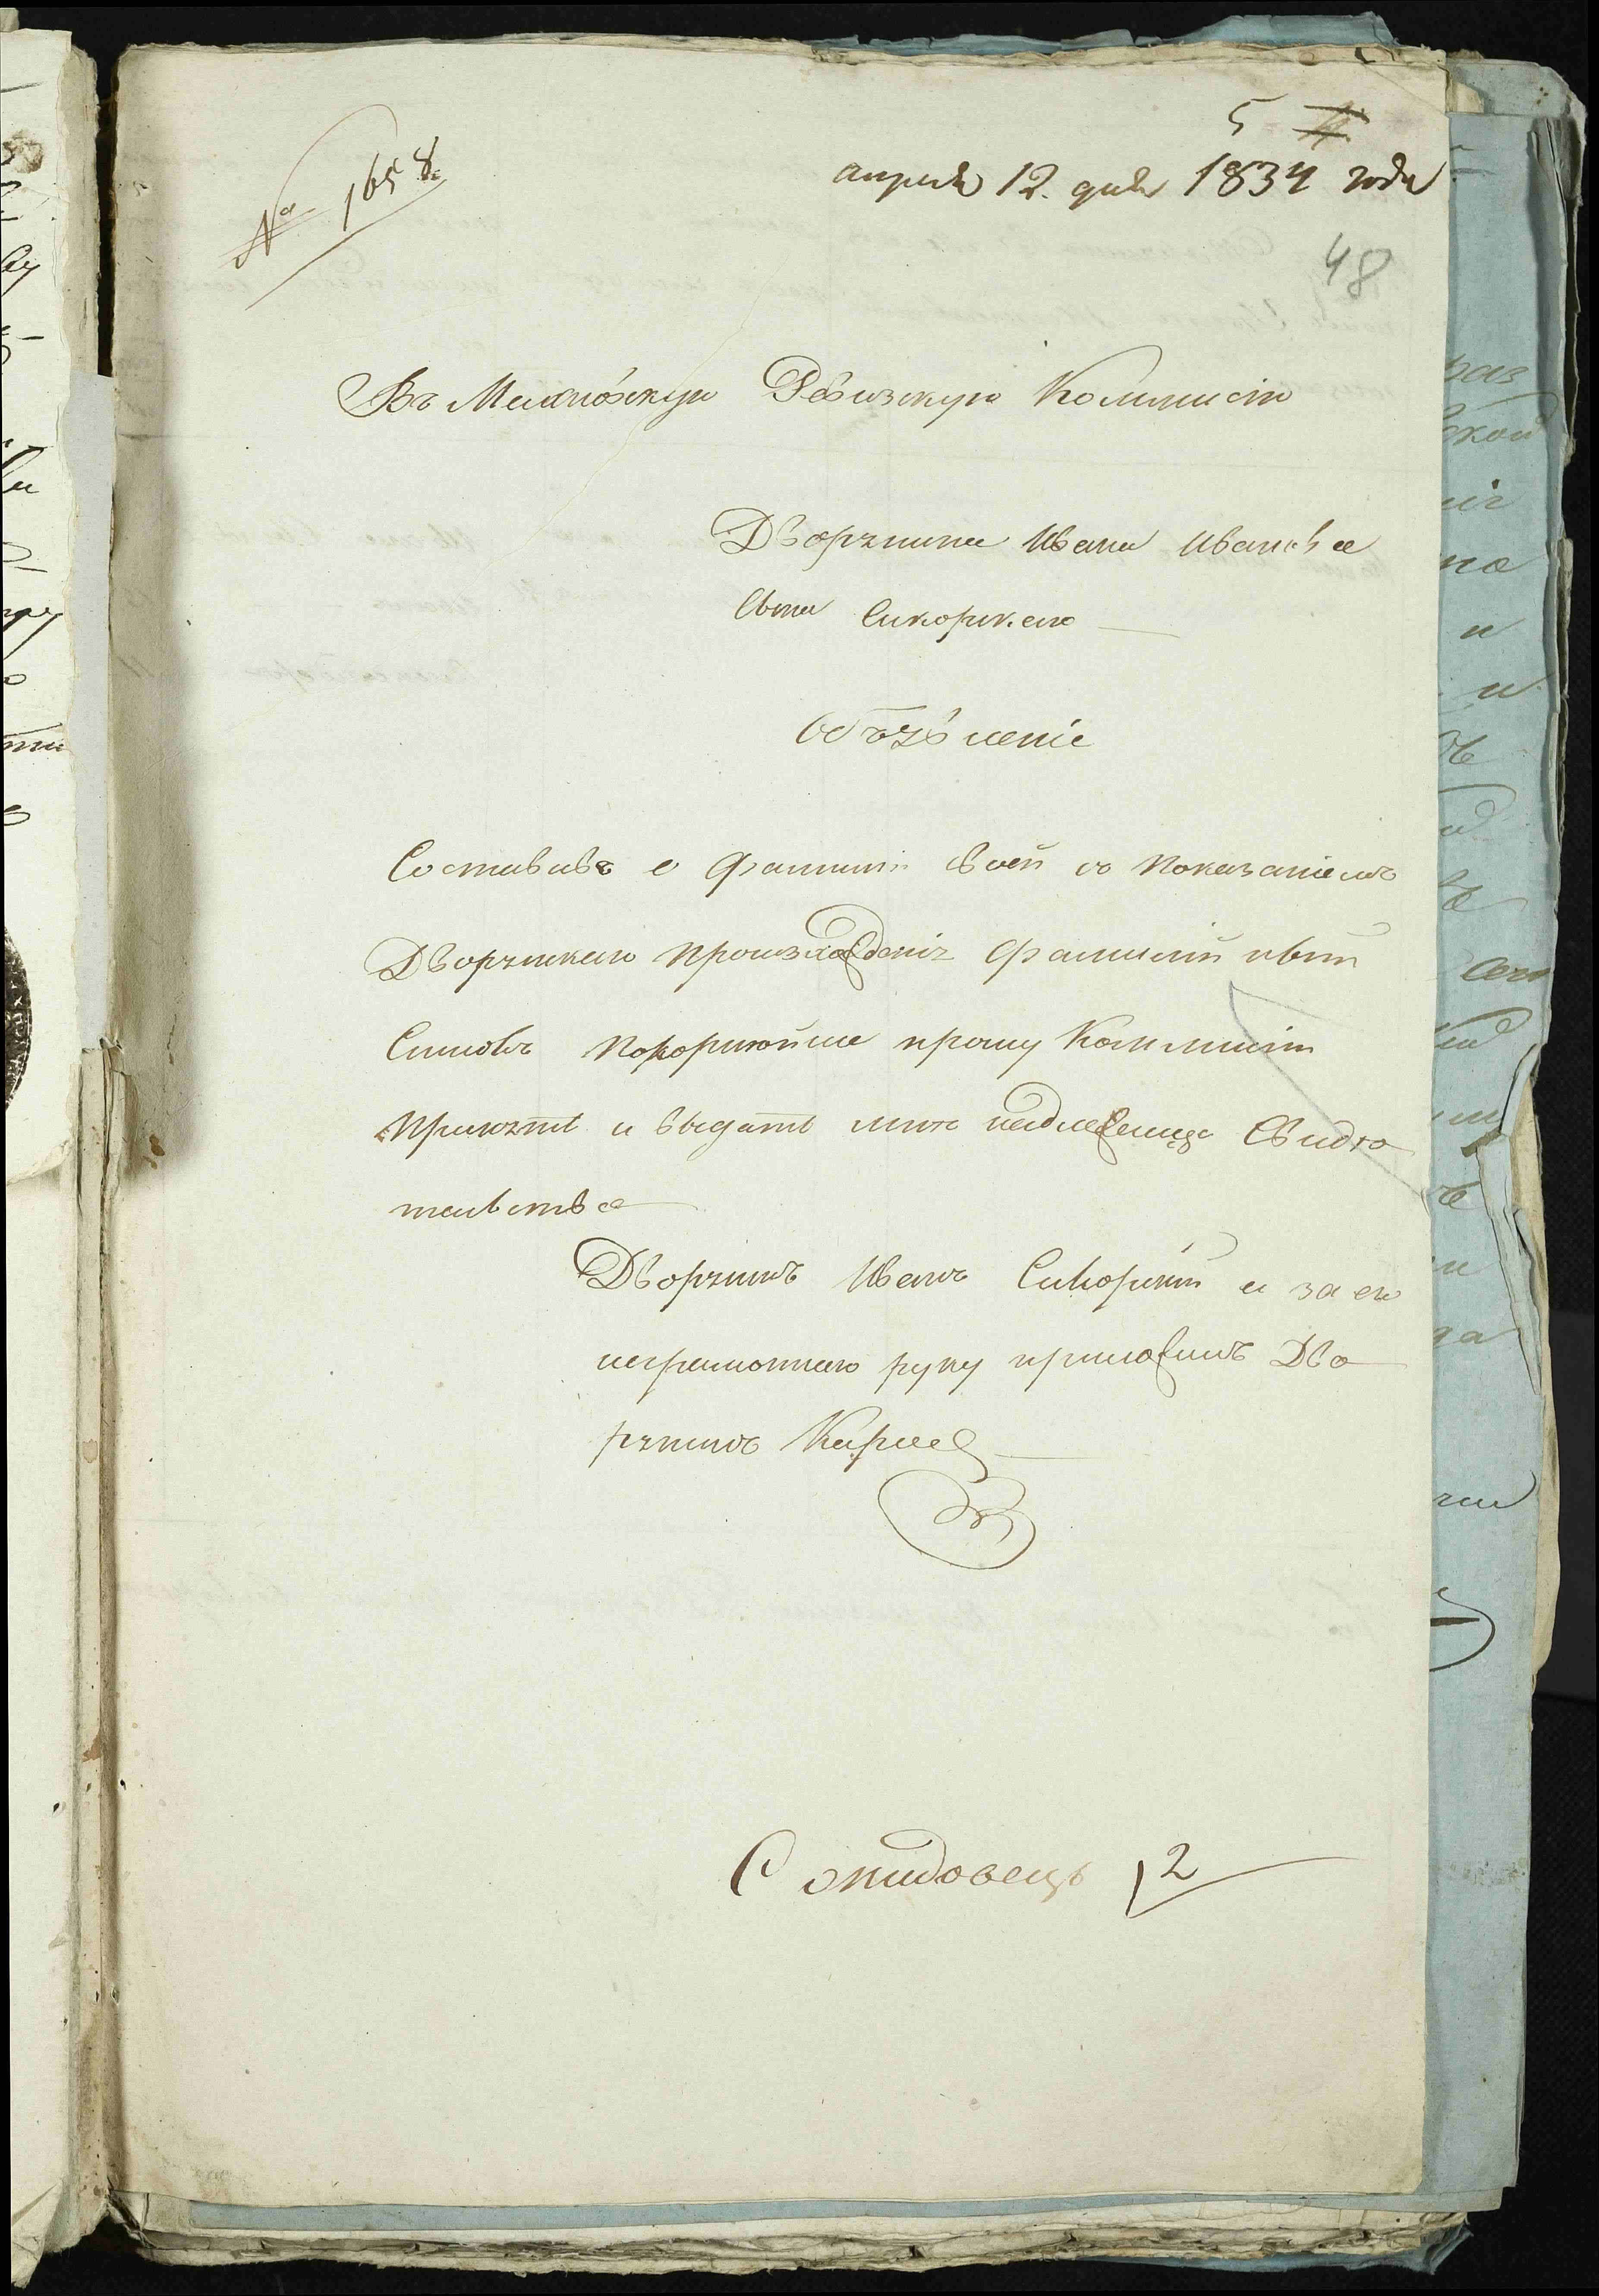 5
№ 1658.
апреля 12. дня 1834 года
48
Въ Махновскую Ревизскую Коммисію
Дворянина Ивана Иванова
Сына Сикорскаго
Объявленіе
Составивъ о Фамиліи своей съ показаніемъ
Дворянскаго происхожденія Фамилій
покорнейше прошу Коммисіи
Принять и выдать мнѣ надлежаще Свидѣ
тельства
Дворянинъ Иванъ Сикорскій а за его
неграмотнаго руку приложилъ Дво
рянинъ
12